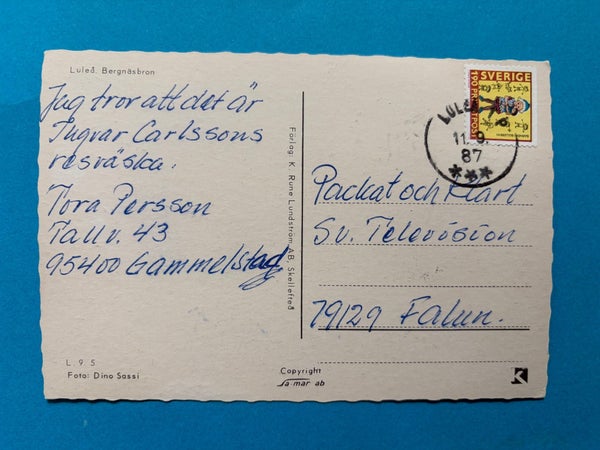 Luleå. Bergnäsbron
Jag tror att det är
Ingvar Carlssons
resväska.
Tora Persson
Tallv. 43
95400 Gammelstad
L. 9. 5
Foto: Dino Sassi
Förlag: K. Rune Lundström AB, Skellefteå
Copyright
Sa-mar ab
SVERIGE
190
LULEÅ
11. 9.
87
Packat och klart
Sv. Television
79129 Falun.
K